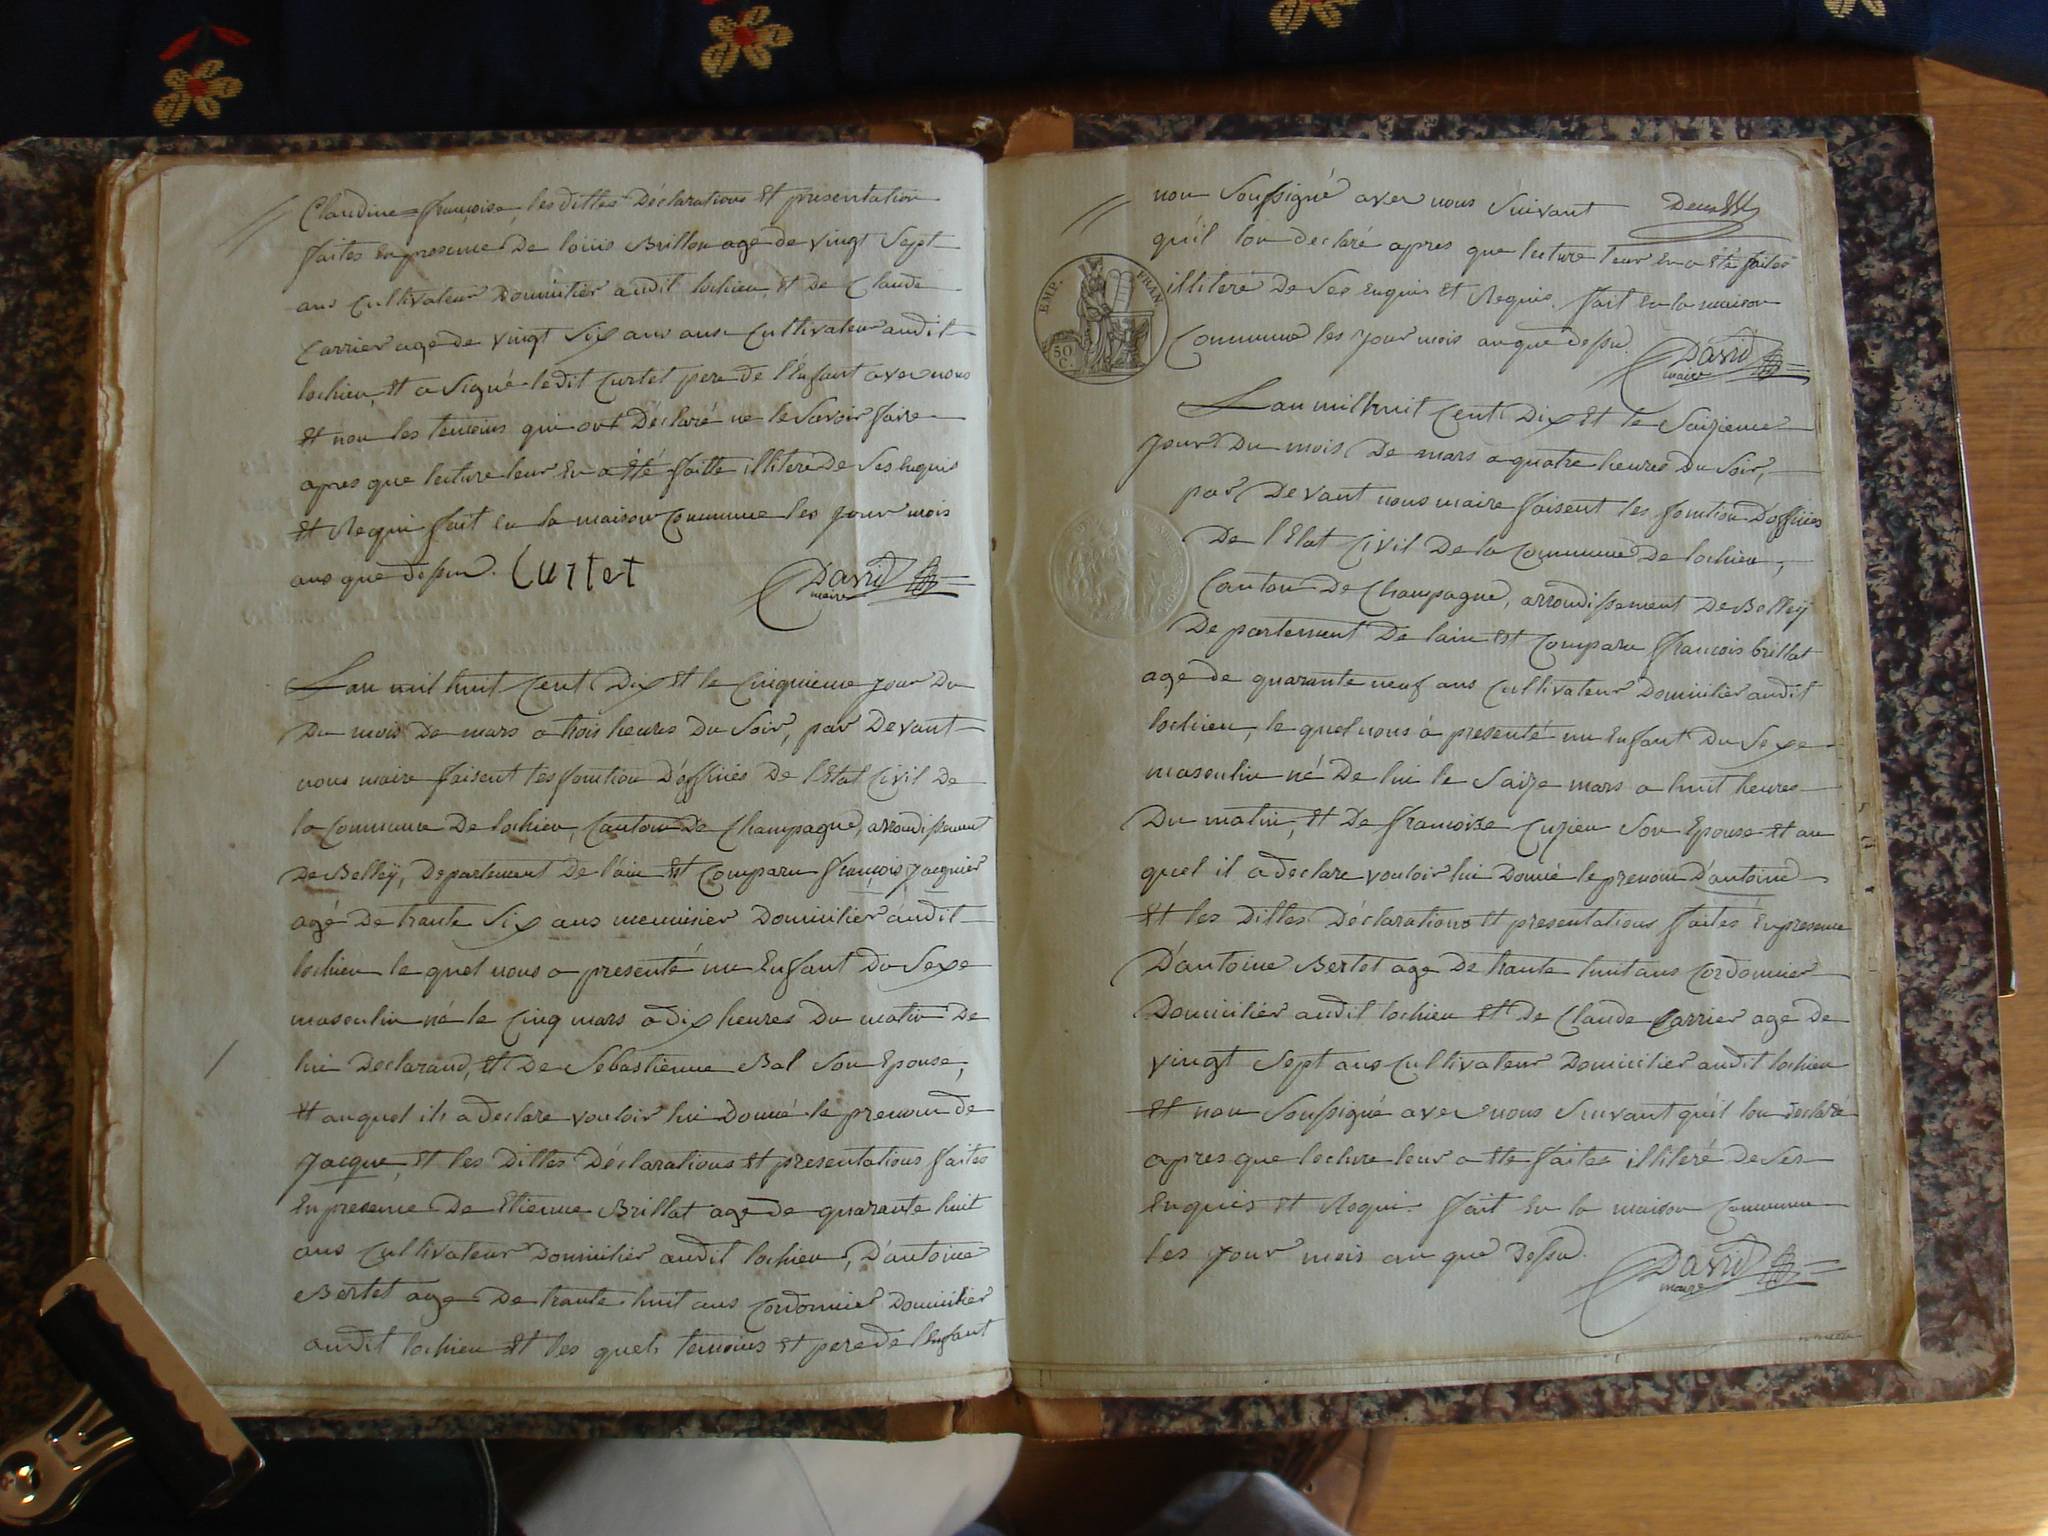 Claudine = françoise, les dittes Déclarations Et presentation
faites En presence De loüis Brillon agé de vingt Sept
ans Cultivateur Domicilier audit lochieu, Et de Claude
Carrier agé de vingt Six ans ans Cultivateur audit
lochieu, Et a Signé ledit Curtet pere de l'Enfant avec nous
Et non les temoins qui ont Déclaré ne le Savoir faire
apres que lecture leur En a Eté faitte illiteré de Ses Enquis
Et Requi fait En la maison Commune les jour mois
ans que dessu. Curtet
David
maire
Lan mil huit Cent Dix Et le Cinquieme jour Du
Du mois De mars a trois heures Du Soir, par Devant
nous maire faisent les fonction D'officiés De l'Etat Civil De
la Commune De lochieu, Canton De Champagne, arrondissement
De Belleÿ, Departement De l'ain Et Comparu françois jacquier
agé De trante Six ans menuisier Domicilier audit
lochieu le quel nous a presenté un Enfant Du Sexe
masculin né le Cinq mars a dix heures Du matin De
lui Declarand, Et De Sebastienne Bal Son Epouse,
Et auquel ils a declare vouloir lui Donné le prenom de
Jacque, Et les Dittes Déclarations Et presentations faites
En presence De Etienne Brillat agé de quarante huit
ans Cultivateur Domicilier audit lochieu, D'antoine
Bertet age De trante huit ans Cordonnier Domicilier
audit lochieu Et les quels temoins Et pere de l'Enfant
non Soussigné avec nous Suivant
quil lon declaré apres que lecture leur En a Eté faites
EMP. FRAN.
50 C.
illiteré De Ses Enquis Et Requis. fait En la maison
Commune les jour mois an que dessu.
David
maire
Lan mil huit Cent Dix Et le Saizieme
jour Du mois De mars a quatre heures Du Soir,
par Devant nous maire faisent les fonction D'officiés
De l'Etat Civil De la Commune De lochieu,
Canton De Champagne, arrondissement De Belleÿ
Departement De lain Et Comparu françois brillat
agé de quarante neuf ans Cultivateur Domicilier audit
lochieu, le quel nous à presenté un Enfant Du Sexe
masculin né De lui le Saize mars a huit heures
Du matin, Et De francoise Cuzieu Son Epouse Et au
quel il a declare vouloir lui Donné le prenom D'antoine
Et les Dittes Déclarations Et presentations faites En presence
D'antoine Bertet age De trante huit ans Cordonnier
Domicilier audit lochieu Et De Claude Carrier age De
vingt Sept ans Cultivateur Domicilier audit lochieu
Et non Soussigné avec nous Suivant quil lon declaré
apres que lecture leur a Ete faites illiteré De Ses
Enquis Et Requi. fait En la maison Commune
les jour mois an que Dessu.
David
maire